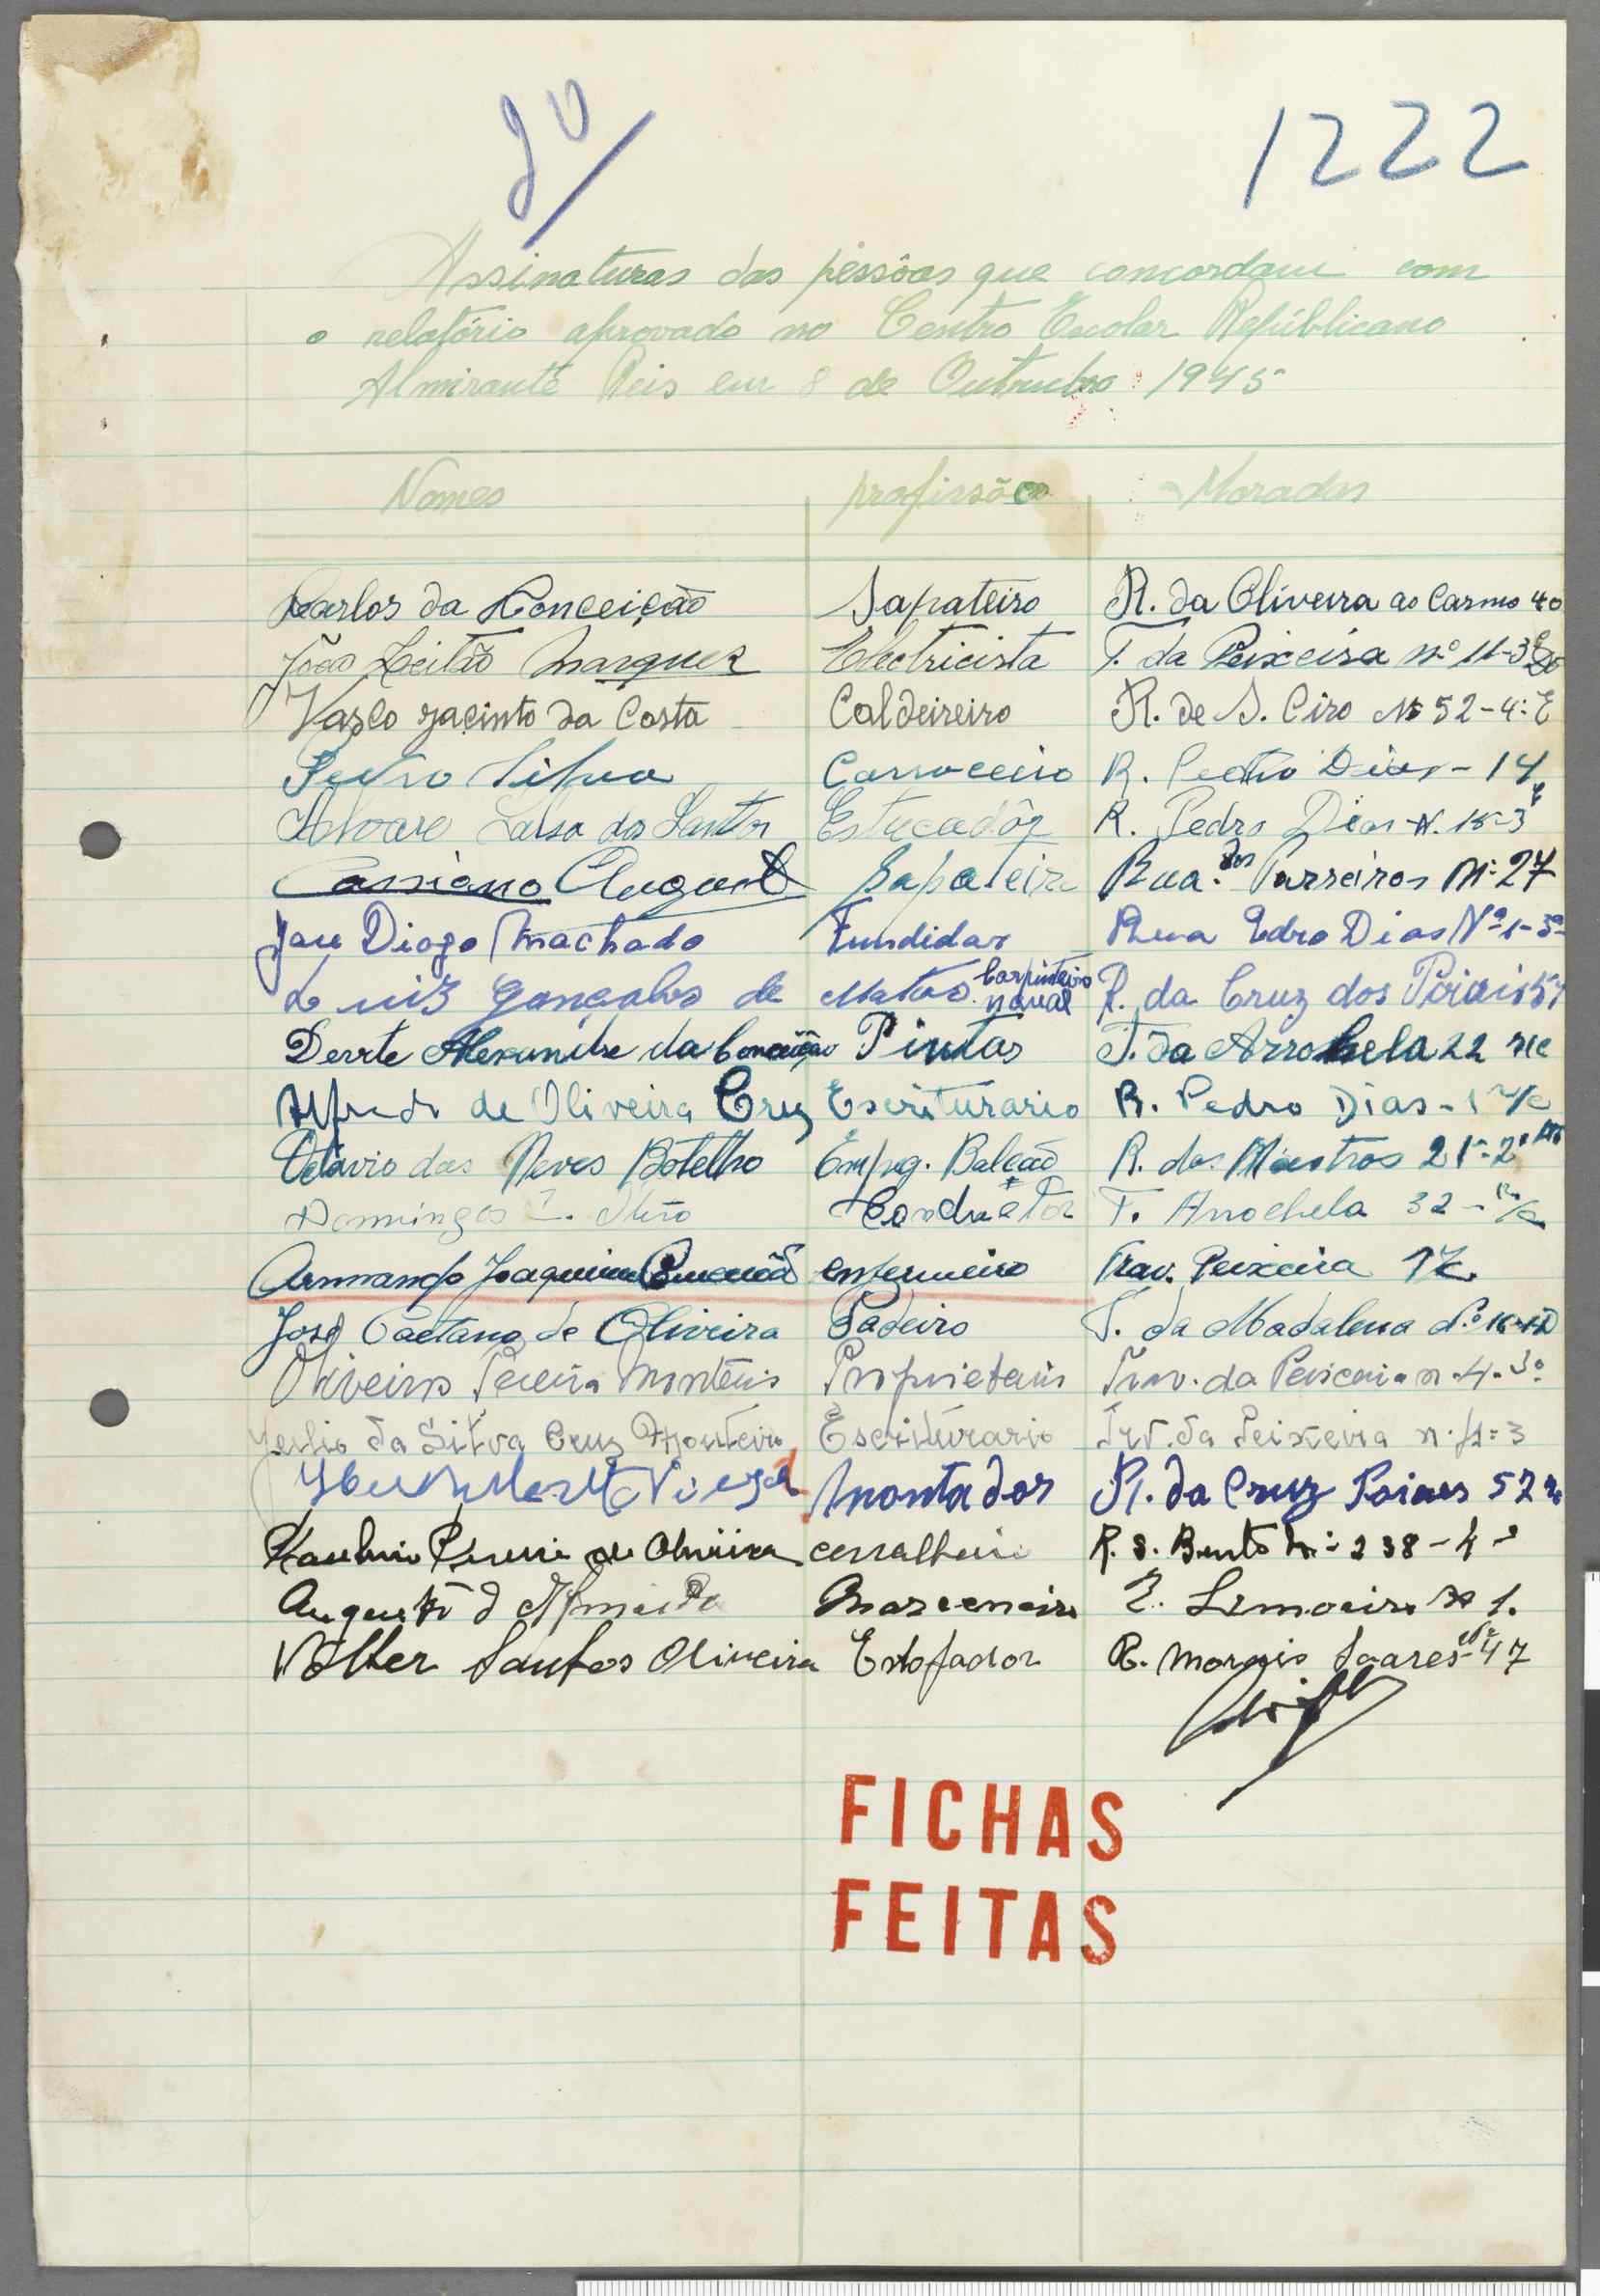 1222
Assinaturas das pessôas que concordam com
o relatório aprovado no Centro Escolar Repúblicano
Almirante Reis em 8 de Outubro 1945
Nomes profissão Moradas
Carlos da Conceição Sapateiro R. da Oliveira ao Carmo 40
João Leitão Marques Electricista T. da Peixeira nº 11-3º
Vasco Jacinto da Costa Caldeireiro R. de S. Ciro Nº 52-4º E
Pedro Silva Carroceiro R. Pedro Dias - 14
dos Santos Estucadôr R. Pedro Dias N. 15-3º
Cassiano August Sapateiro Rua dos Nº 27
Diogo Machado Fundidor Rua Pedro Dias Nº 1-3º
Luiz Gonçalves de Matos Carpinteiro naval R. da Cruz dos Poiais 57
Alexandre da Conceição Pintor T. da Arrochela 22 r/c
Alfredo de Oliveira Cruz Escriturario R. Pedro Dias - 1 r/c
Octávio das Neves Botelho Empg. Balcão R. dos Mastros 21-2º
Domingos Condutor T. Arrochela 32 - r/c
Armando Joaquim Conceição enfermeiro Trav. Peixeira
José Caetano de Oliveira Padeiro T. da Madalena
Oliveiros Pereira Monteiro Proprietario Trav. da Peixeira n. 4-3º
da Silva Cruz Monteiro Escriturario Trv. da Peixeira n. 4-3
Montador R. da Cruz Poiais 57
de Oliveira serralheiro R. S. Bento Nº 238-4º
Augusto d Almeida Marceneiro Limoeiro Nº 1.
Walter Santos Oliveira Estofador R. Morais Soares 47
FICHAS
FEITAS